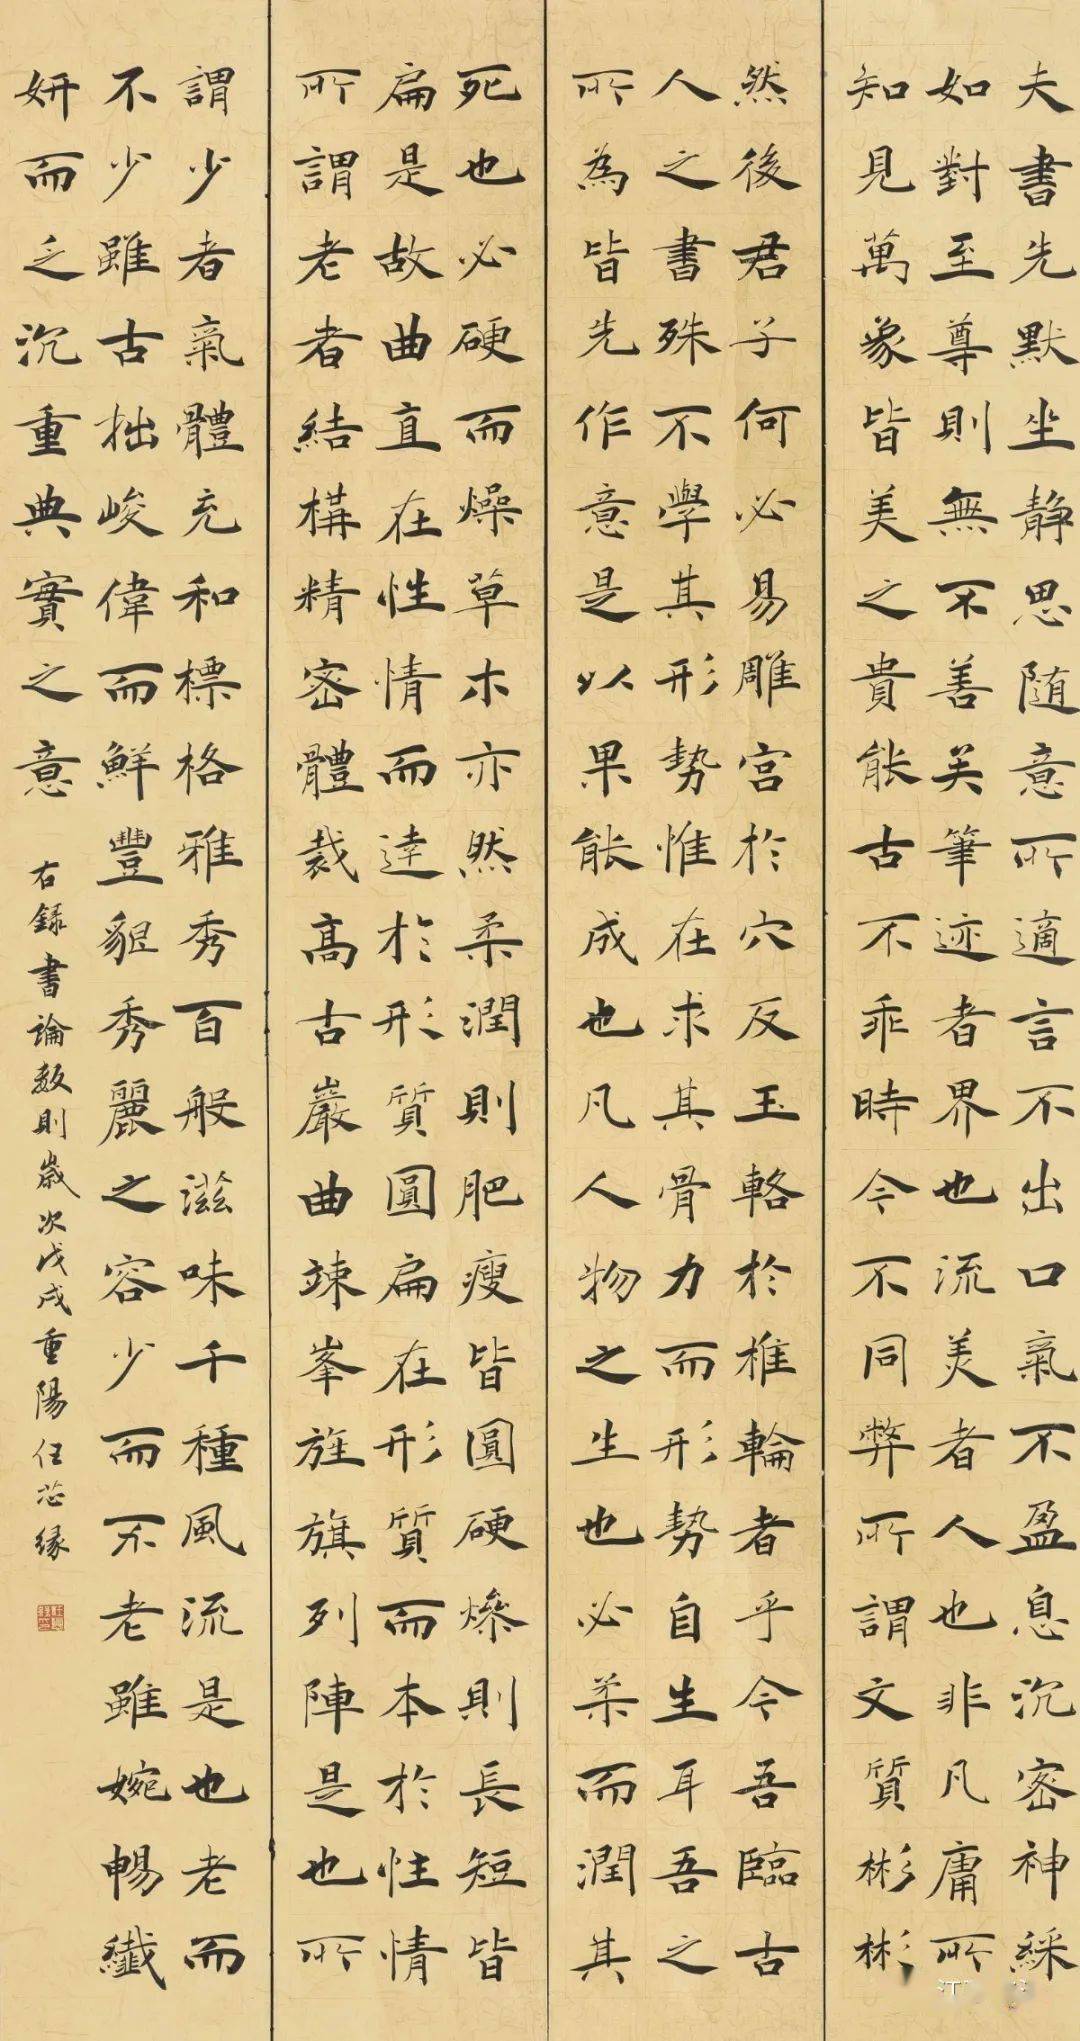 夫書先默坐静思随意所適言不出口氣不盈息沉密神綵
如對至尊則無不善美筆迹者界也流美者人也非凡庸所
知見萬象皆美之貴能古不乖時今不同弊所謂文質彬彬
然後君子何必易雕宫於穴反玉輅於椎輪者乎今吾臨古
人之書殊不學其形勢惟在求其骨力而形勢自生耳吾之
所為皆先作意是以果能成也凡人物之生也必柔而潤其
死也必硬而燥草木亦然柔潤則肥瘦皆圓硬燥則長短皆
扁是故曲直在性情而達於形質圓扁在形質而本於性情
所謂老者結構精密體裁高古巖曲竦峯旌旗列陣是也所
謂少者氣體充和標格雅秀百般滋味千種風流是也老而
不少雖古拙峻偉而鮮豐貌秀麗之容少而不老雖婉暢纖
妍而乏沉重典實之意
右録書論数則歲次戊戌重陽任芯缘